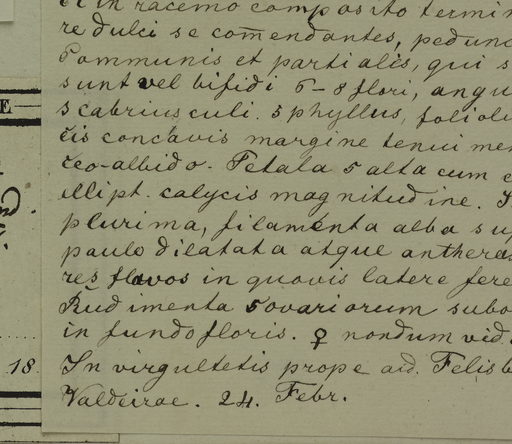 et in racemo composito termin
re dulci se com̄endantes, pedunc
communis et partialis, qui s
sunt vel bifidi 6-8 flori, angu
scabriusculi. 5 phyllus, foliol
cis concavis margine tenui mem
ceo-albido. Petala 5 alta cum c
ellipt. calycis magnitudine. S
plurima, filamenta alba su
paulo dilatata atque anthera
res flavos in quovis latere fere
Rudimenta 5 ovariorum subo
in fundo floris. ♀ nondum vid.
In virgultetis prope ad. Felisb
Valdeirae. 24. Febr.
E
18